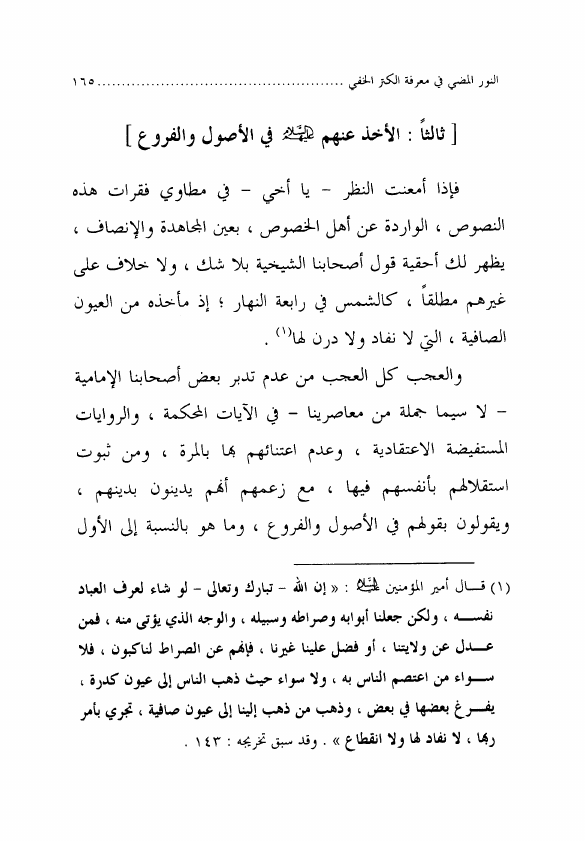 النور المضي في معرفة الكنز الخفي ................................................ ١٦٥
[ ثالثاً : الأخذ عنهم عليهم السلام في الأصول والفروع ]
فإذا أمعنت النظر – يا أخي – في مطاوي فقرات هذه
النصوص ، الواردة عن أهل الخصوص ، بعين المجاهدة والإنصاف ،
يظهر لك أحقية قول أصحابنا الشيخية بلا شك ، ولا خلاف على
غيرهم مطلقاً ، كالشمس في رابعة النهار ؛ إذ مأخذه من العيون
الصافية ، التي لا نفاد ولا درن لها(١) .
والعجب كل العجب من عدم تدبر بعض أصحابنا الإمامية
– لا سيما جملة من معاصرينا – في الآيات المحكمة ، والروايات
المستفيضة الاعتقادية ، وعدم اعتنائهم بها بالمرة ، ومن ثبوت
استقلالهم بأنفسهم فيها ، مع زعمهم أنهم يدينون بدينهم ،
ويقولون بقولهم في الأصول والفروع ، وما هو بالنسبة إلى الأول
(١) قـال أمير المؤمنين عليه السلام : « إن الله – تبارك وتعالى – لو شاء لعرف العباد
نفسـه ، ولكن جعلنا أبوابه وصراطه وسبيله ، والوجه الذي يؤتى منه ، فمن
عـدل عن ولايتنا ، أو فضل علينا غيرنا ، فإنهم عن الصراط لناكبون ، فلا
سـواء من اعتصم الناس به ، ولا سواء حيث ذهب الناس إلى عيون كدرة ،
يفـرغ بعضها في بعض ، وذهب من ذهب إلينا إلى عيون صافية ، تجري بأمر
ربها ، لا نفاد لها ولا انقطاع » . وقد سبق تخريجه : ١٤٣ .